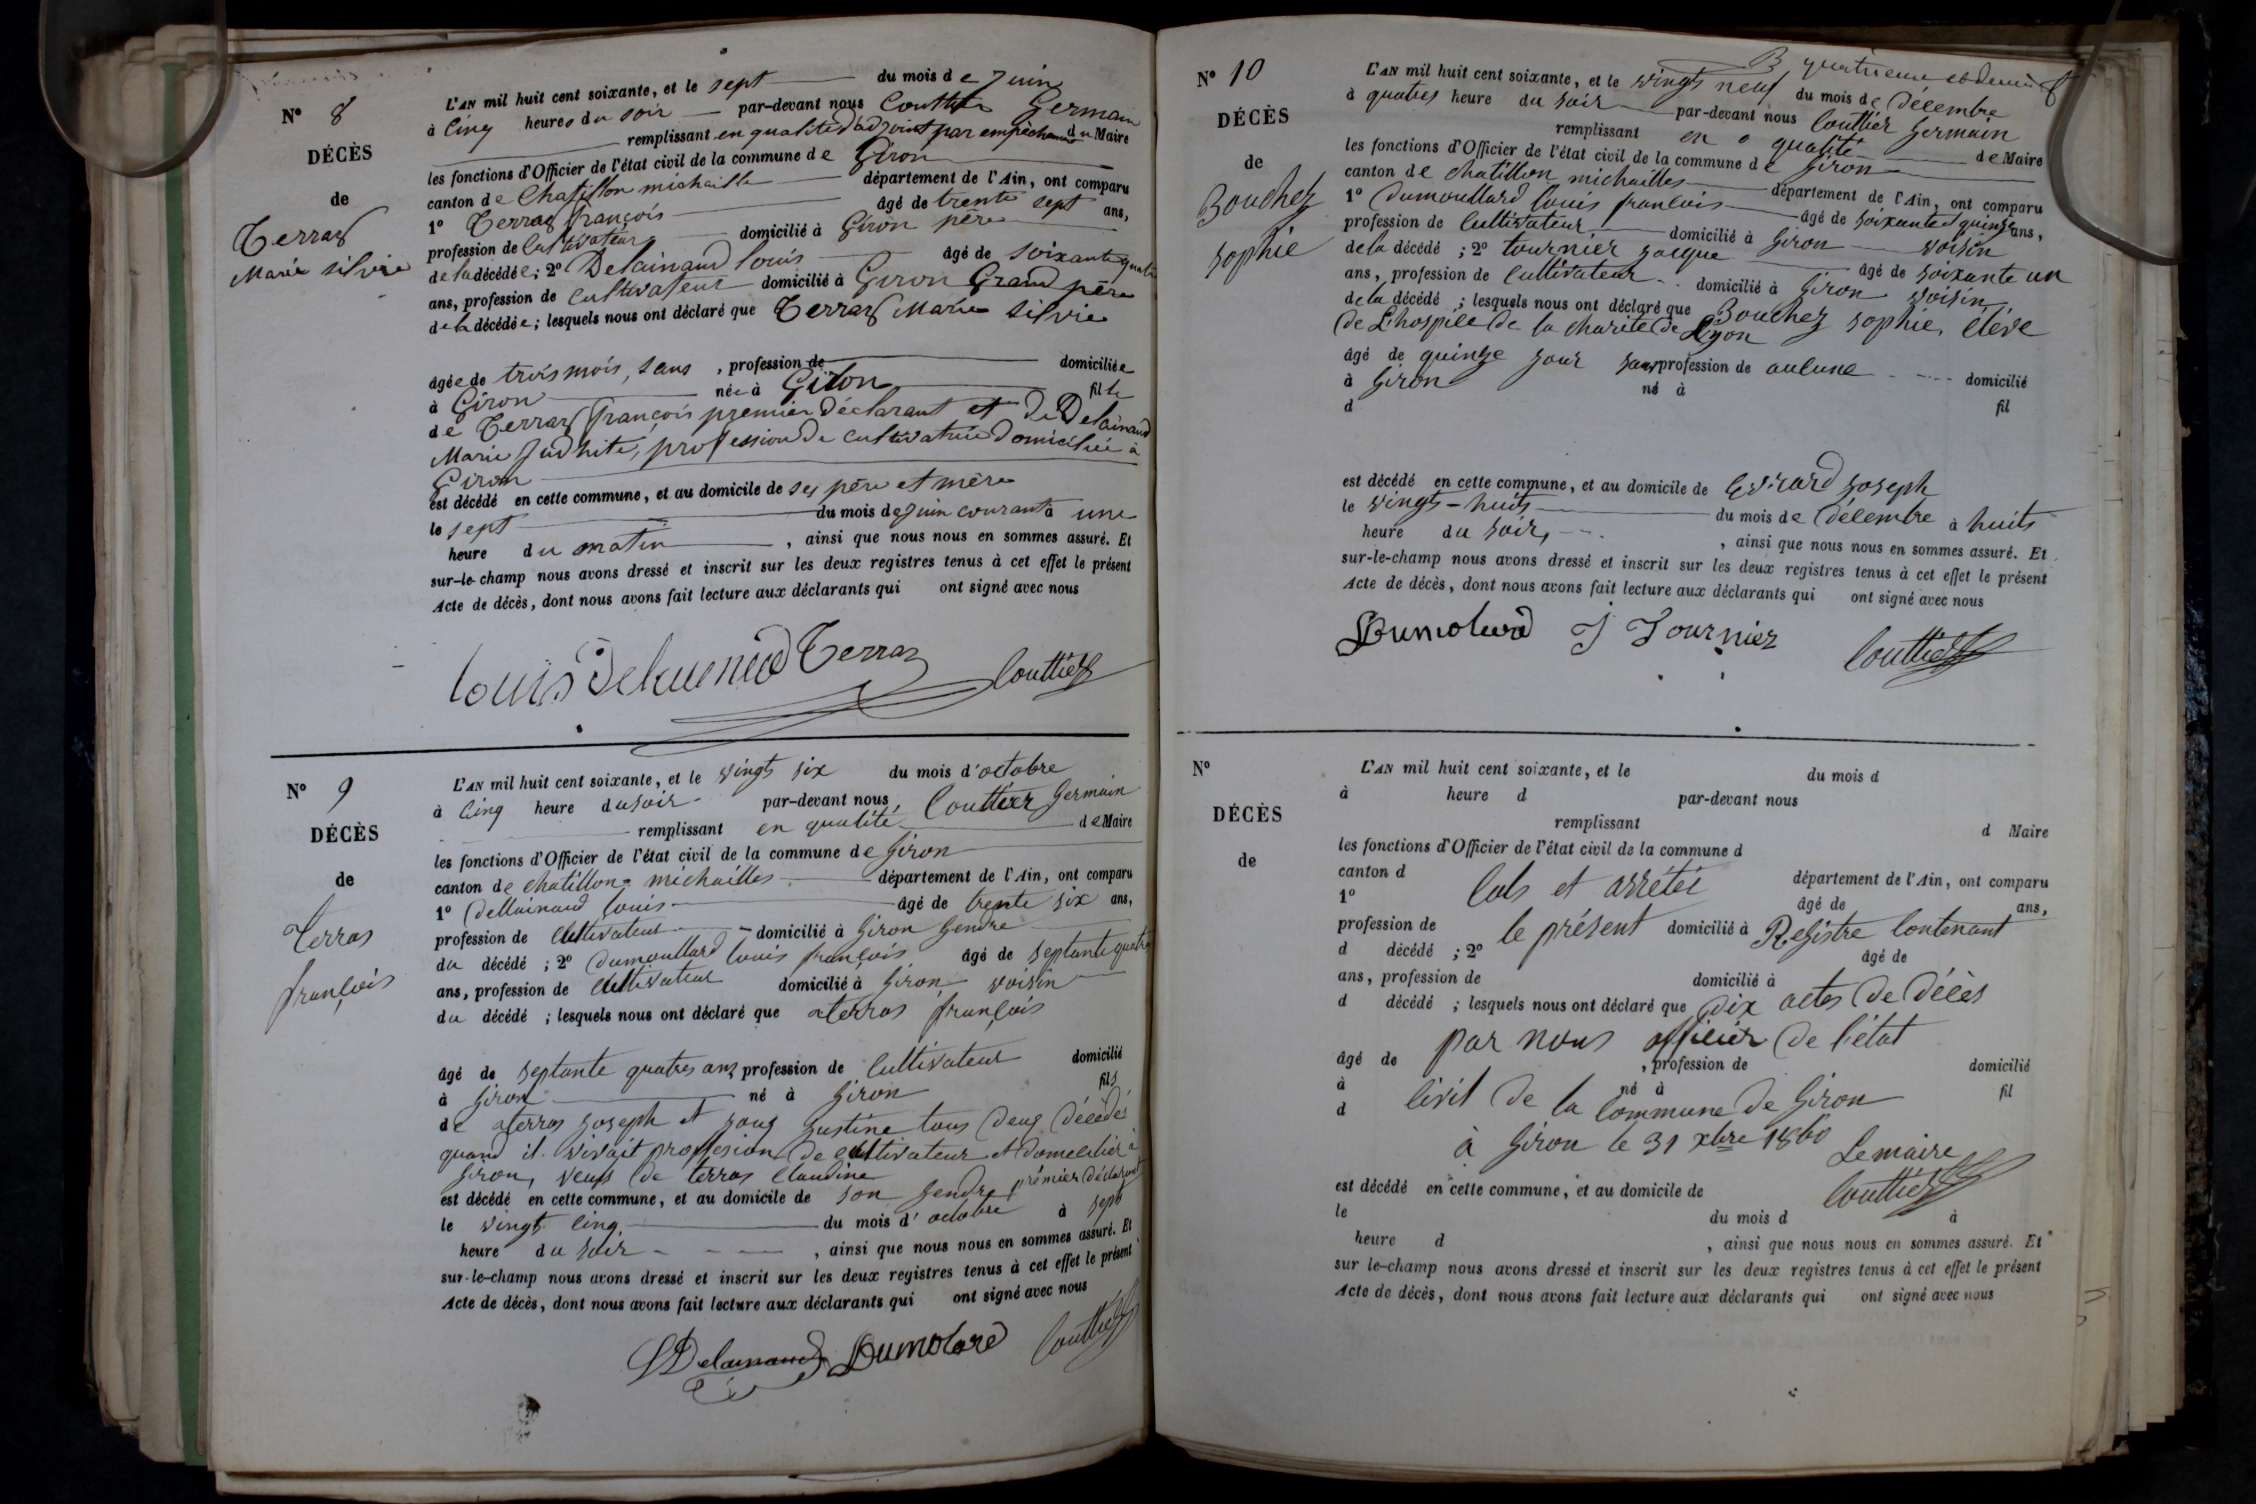 N° 8
DÉCÈS
de
Terraz
Marie silvie
L'AN mil huit cent soixante, et le sept du mois de Juin
à Cinq heures du soir par-devant nous Couttier Germain
remplissant en qualité d'adjoint par empêchement du Maire
les fonctions d'Officier de l'état civil de la commune de Giron
canton de Chatillon michaille département de l'Ain, ont comparu
1° Terraz françois âgé de trente sept ans,
profession de Cultivateur domicilié à Giron père
de la décédée; 2° Delainaud louis âgé de soixante quatre
ans, profession de Cultivateur domicilié à Giron Grand père
de la décédée; lesquels nous ont déclaré que Terraz Marie silvie
âgée de trois mois, sans, profession de domiciliée
à Giron née à Giron fille
de Terraz françois premier déclarant et de Delainaud
Marie Judhite, profession de cultivatrice domiciliée à
Giron
est décédé en cette commune, et au domicile de ses père et mère
le sept du mois de Juin courant à une
heure du matin, ainsi que nous nous en sommes assuré. Et
sur-le-champ nous avons dressé et inscrit sur les deux registres tenus à cet effet le présent
Acte de décès, dont nous avons fait lecture aux déclarants qui ont signé avec nous
Louis Delainaud Terraz Couttier
N° 9
DÉCÈS
de
Terras
françois
L'AN mil huit cent soixante, et le vingt six du mois d'octobre
à Cinq heure du soir par-devant nous, Couttier Germain
remplissant en qualité de Maire
les fonctions d'Officier de l'état civil de la commune de Giron
canton de chatillon michailles département de l'Ain, ont comparu
1° dellainaud louis âgé de trente six ans,
profession de Cultivateur domicilié à Giron Gendre
du décédé; 2° dumoullard louis françois âgé de septante quatre
ans, profession de Cultivateur domicilié à Giron voisin
du décédé; lesquels nous ont déclaré que terras françois
âgé de septante quatres ans profession de Cultivateur domicilié
à Giron né à Giron fils
de terras joseph et Justine tous deux décédés
quand il vivait proffesion de Cultivateur et domecilier à
Giron, veuf de terras Claudine
est décédé en cette commune, et au domicile de son Gendre prémier déclarant
le vingt cinq du mois d'octobre à sept
heure du soir, ainsi que nous nous en sommes assuré. Et
sur-le-champ nous avons dressé et inscrit sur les deux registres tenus à cet effet le présent
Acte de décès, dont nous avons fait lecture aux déclarants qui ont signé avec nous
LDelainaud Dumolard Couttier
quatrieme et dernier
N° 10
DÉCÈS
de
Bouchez
sophie
L'AN mil huit cent soixante, et le vingts neuf du mois de décembre
à quatres heure du soir par-devant nous Couttier Germain
remplissant en qualité de Maire
les fonctions d'Officier de l'état civil de la commune de Giron
canton de chatillon michailles département de l'Ain, ont comparu
1° dumoullard louis francois âgé de soixante quinze ans,
profession de Cultivateur domicilié à Giron voisin
de la décédé; 2° tournier jacque âgé de soixante un
ans, profession de Cultivateur domicilié à Giron voisin
de la décédé; lesquels nous ont déclaré que Bouchez sophie, élève
de L'hospice de la charité de Lyon
âgé de quinze jour sans profession de aucune domicilié
à Giron né à
d fil
est décédé en cette commune, et au domicile de Evrard joseph
le vingts-huits du mois de décembre à huits
heure du soir, ainsi que nous nous en sommes assuré. Et
sur-le-champ nous avons dressé et inscrit sur les deux registres tenus à cet effet le présent
Acte de décès, dont nous avons fait lecture aux déclarants qui ont signé avec nous
Dumolard J Tournier Couttier
N°
DÉCÈS
de
L'AN mil huit cent soixante, et le du mois d
à heure d par-devant nous
remplissant d Maire
les fonctions d'Officier de l'état civil de la commune d
canton d département de l'Ain, ont comparu
Clos et arrétée
1° âgé de ans,
profession de domicilié à
le présent Régistre Contenant
d décédé; 2° âgé de
ans, profession de domicilié à
d décédé; lesquels nous ont déclaré que dix actes de Décès
par nous officier de l'état
âgé de, profession de domicilié
à né à fil
d Civil de la Commune de Giron
à Giron le 31 xbre 1860 Le maire
Couttier
est décédé en cette commune, et au domicile de
le du mois d à
heure d, ainsi que nous nous en sommes assuré. Et
sur le-champ nous avons dressé et inscrit sur les deux registres tenus à cet effet le présent
Acte de décès, dont nous avons fait lecture aux déclarants qui ont signé avec nous